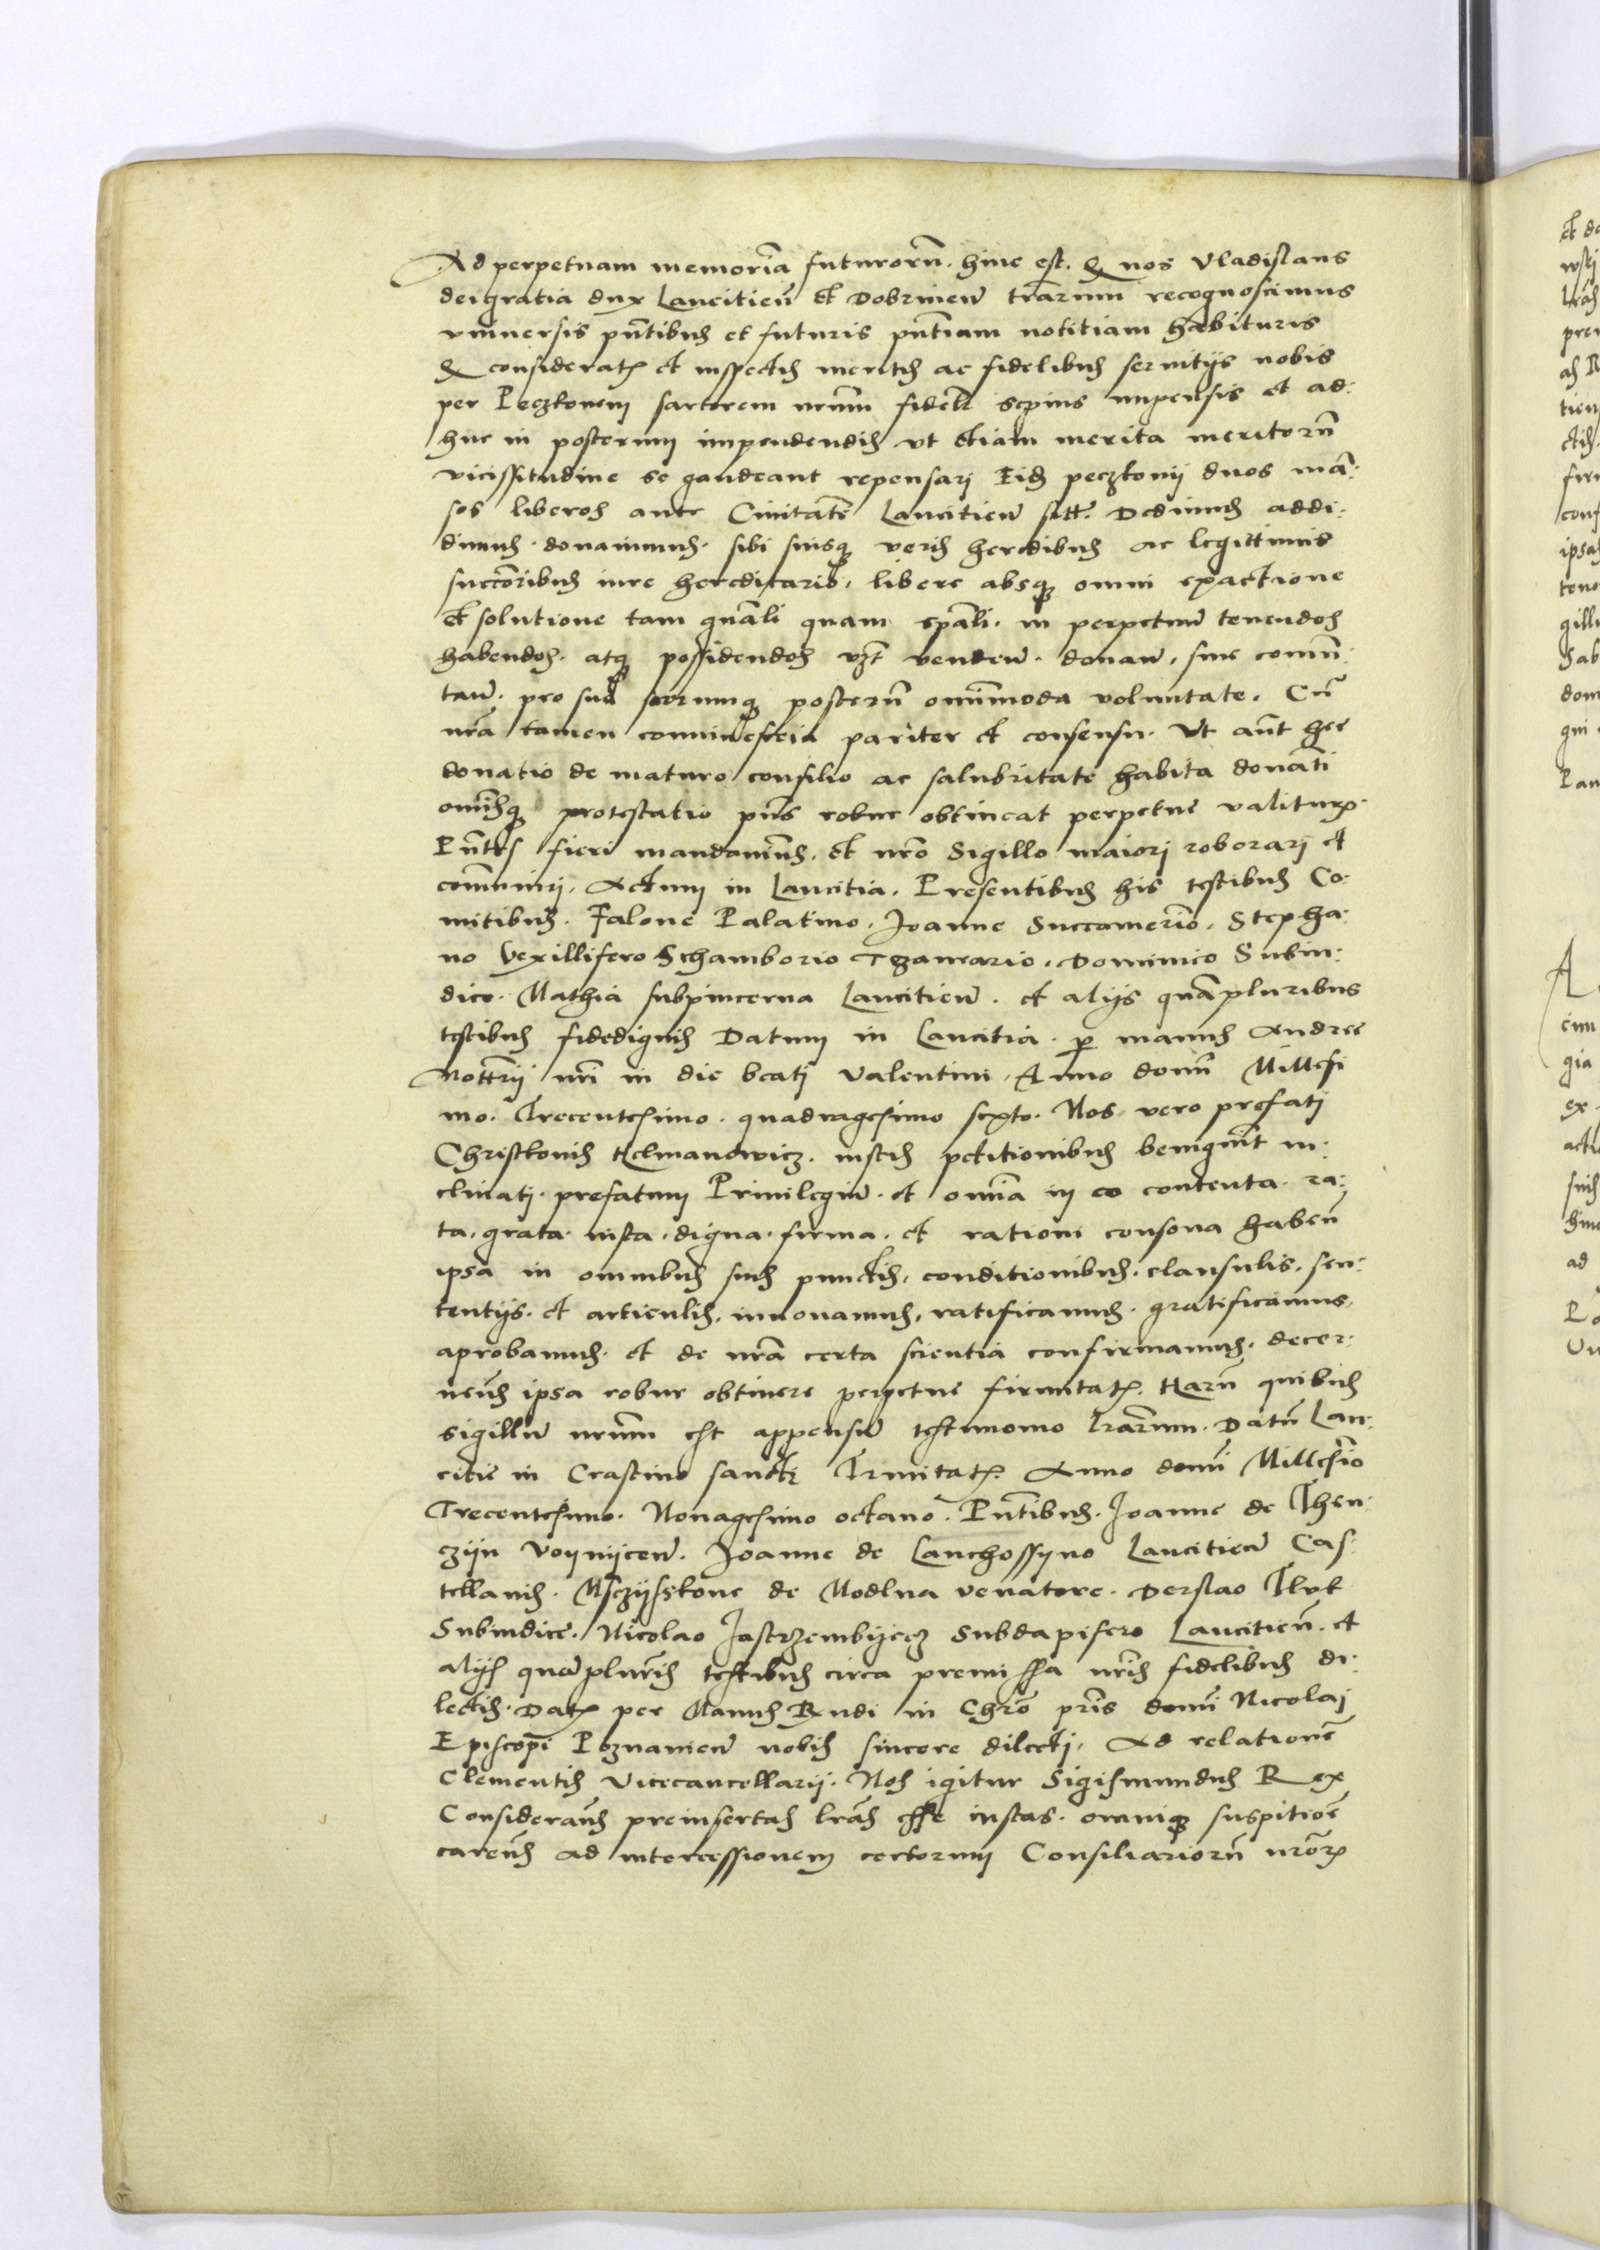 Ad perpetuam memoriā futurorū. hinc est. Q nos Vladislaus
dei gratia dux Lancitieñ et Dobrineñ trarum recognoscimus
vniuersis pñtibus et futuris pñtiam notitiam habituris
Q consideratis et inspectis meritis ac fidelibus seruitijs nobis
per Peczkonem sartorem nrūm fidelē sepius impensis et ad:
huc in posterum impendendis vt etiam merita meritorū
vicissitudine se gaudeant repensari Eidē peczkonij duos mā:
sos liberos ante Ciuitatē Lancitieñ sitt. Dedimus addi:
dimus. donauimus. sibi suisq̧ veris heredibus ac legittimis
succēoribus iure hereditario, libere absq̧ omni exactione
et solutione tam gñali quam spāli. in perpetuū tenendos
habendos. atq̧ possidendos vzt vendeñ. donañ, siue comū:
tañ. pro sua suorumq̧ posterū omnimoda voluntate. Cū
nrā tamen conniuescēcia pariter et consensu. Vt aūt hec
donatio de maturo consilio ac salubritate habita donāti
omnisq̧ protestatio pñs robur obtineat perpetue valiturȩ.
Pñtes fieri mandauimus. et nrō Sigillo maiori roborari et
communiri, Actum in Lancitia. Presentibus his testibus Co:
mitibus. Falone Palatino, Joanne Succamerio, Stepha:
no Vexillifero Schamborio Tezaurario, Dominico Subiu:
dice. Mathia subpincerna Lancitieñ. et alijs quāpluribus
testibus fidedignis Datum in Lancitia. p manus Andree
Nottrij nri in die beati Valentini, Anno domī Millesi
mo. Trecentesimo. quadragesimo sexto. Nos vero prefati
Christkonis Helmanowicz. iustis petitionibus benignīt in:
clinati. prefatum Priuilegiū. et omnīa in eo contenta. ra:
ta, grata. iusta. digna. firma. et rationi consona habeñ
ipsa in omnibus suis punctis, conditionibus. clausulis, sen:
tentijs. et articulis, innouamus, ratificamus. gratificamus,
aprobamus. et de nrā certa scientia confirmamus. decer:
neñs ipsa robur obtinere perpetue firmitatis. Harū quibus
sigillū nrūm est appensū testimonio lrārum. Datū Lan:
citie in Crastino sancte Trinitatis. Anno domī Millesīo
Trecentesimo. Nonagesimo octauo. Pñtibus. Joanne de Then:
czijn Voijnijceñ. Joanne de Lanchossijno Lancitieñ Cas:
tellanis. Msczijsskone de Modlna venatore. Derslao Tluk
Subiudice. Nicolao Jastrzembijecz Subdapifero Lancitieñ. et
alijs quāplurīs testibus circa premissa nrīs fidelibus di:
lectis. Datis per Manus Rndi in Chrō prīs domī Nicolai
Episcopi Poznanieñ nobis sincere dilecti, Ad relationē
Clementis Vicecancellarij. Nos igitur Sigismundus Rex
Considerañs preinsertas lrās esse iustas. omniq̧ suspitiōe
careñs ad intercessionem certorum Consiliariorū nrōrȩ